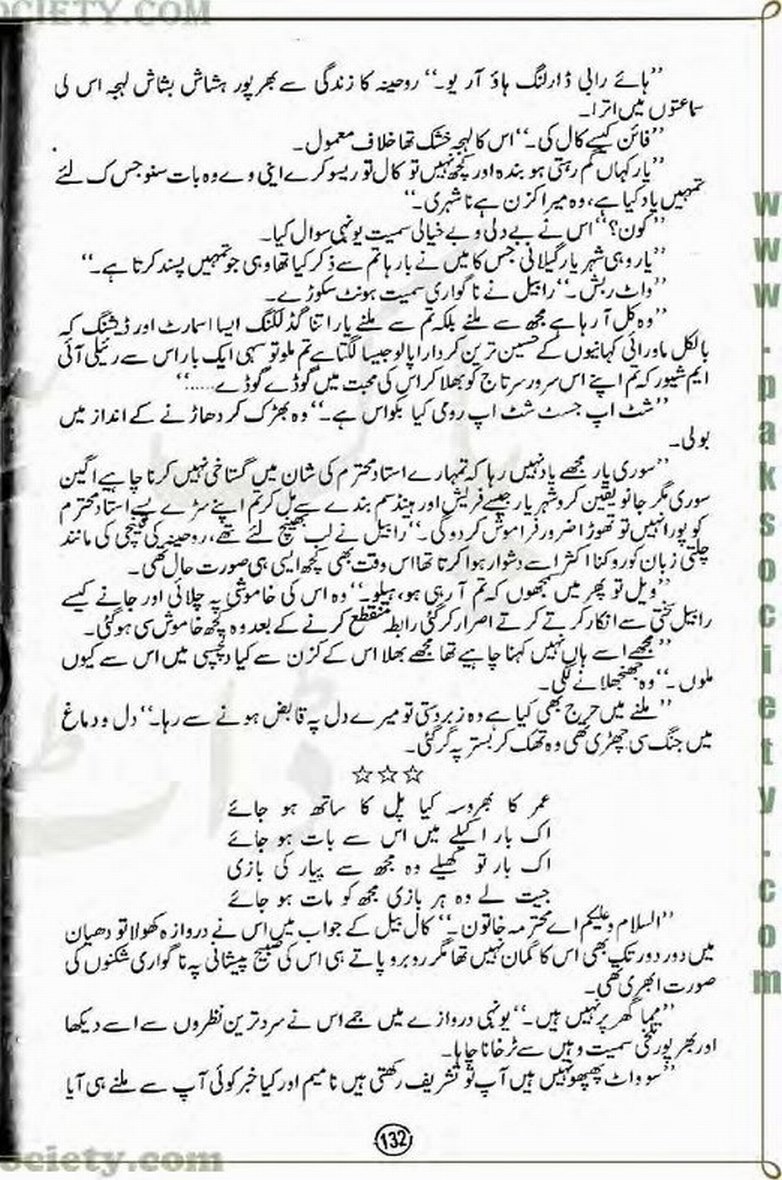 OCIETY.COM
”ہائے رابی ڈارلنگ ہاؤ آر یو۔“ روحینہ کا زندگی سے بھرپور ہشاش بشاش لہجہ اس لی
سماعتوں میں اترا۔
”فائن کیسے کال کی۔“ اس کا لہجہ خشک تھا خلاف معمول۔
”یار کہاں گم رہتی ہو بندہ اور کچھ نہیں تو کال تو ریسو کرے اینی وے وہ بات سنو جس ک لئے
تمہیں یاد کیا ہے، وہ میرا کزن ہے نا شہری۔“
”کون؟“ اس نے بے دلی و بے خیالی سمیت یونہی سوال کیا۔
”یار وہی شہریار گیلانی جس کا میں نے بارہا تم سے ذکر کیا تھا وہی جو تمہیں پسند کرتا ہے۔“
”واٹ ربش۔“ رابیل نے ناگواری سمیت ہونٹ سکوڑے۔
”وہ کل آ رہا ہے مجھ سے ملنے بلکہ تم سے ملنے یار اتنا گڈ لکنگ ایسا اسمارٹ اور ڈیشنگ کہ
بالکل ماورائی کہانیوں کے حسین ترین کردار اپالو جیسا لگتا ہے تم ملو تو سہی ایک بار اس سے رئیلی آئی
ایم شیور کہ تم اپنے اس سرور سرتاج کو بھلا کر اس کی محبت میں گوڈے گوڈے.....؟“
”شٹ اپ جسٹ شٹ اپ رومی کیا بکواس ہے۔“ وہ بھڑک کر دھاڑنے کے انداز میں
بولی۔
”سوری یار مجھے یاد نہیں رہا کہ تمہارے استاد محترم کی شان میں گستاخی نہیں کرنا چاہیے اگین
سوری مگر جانو یقین کرو شہریار جیسے فریش اور ہینڈسم بندے سے مل کر تم اپنے سڑے بسے استاد محترم
کو پورا نہیں تو تھوڑا ضرور فراموش کر دو گی۔“ رابیل نے لب بھینچ لئے تھے، روحینہ کی قینچی کی مانند
چلتی زبان کو روکنا اکثر اسے دشوار ہوا کرتا تھا اس وقت بھی کچھ ایسی ہی صورت حال تھی۔
”ویل تو پھر میں سمجھوں کہ تم آ رہی ہو، ہیلو۔“ وہ اس کی خاموشی پہ چلائی اور جانے کیسے
رابیل سختی سے انکار کرتے کرتے اصرار کر گئی رابطہ منقطع کرنے کے بعد وہ کچھ خاموش سی ہو گئی۔
”مجھے اسے ہاں نہیں کہنا چاہیے تھا مجھے بھلا اس کے کزن سے کیا دلچسپی میں اس سے کیوں
ملوں۔“ وہ جھنجھلانے لگی۔
”ملنے میں حرج بھی کیا ہے وہ زبردستی تو میرے دل پہ قابض ہونے سے رہا۔“ دل و دماغ
میں جنگ سی چھڑی تھی وہ تھک کر بستر پہ گر گئی۔
☆☆☆
عمر کا بھروسہ کیا پل کا ساتھ ہو جائے
اک بار اکیلے میں اس سے بات ہو جائے
اک بار تو کھیلے وہ مجھ سے پیار کی بازی
جیت لے وہ ہر بازی مجھ کو مات ہو جائے
”السلام وعلیکم اے محترمہ خاتون۔“ کال بیل کے جواب میں اس نے دروازہ کھولا تو دھیان
میں دور دور تک بھی اس کا گمان نہیں تھا مگر روبرو پاتے ہی اس کی صبیح پیشانی پہ ناگواری شکنوں کی
صورت ابھری تھی۔
”مما گھر پر نہیں ہیں۔“ یونہی دروازے میں جمے اس نے سرد ترین نظروں سے اسے دیکھا
اور بھرپور تلخی سمیت وہیں سے ٹرخانا چاہا۔
”سو واٹ پھپھو نہیں ہیں آپ تو تشریف رکھتی ہیں نا میم اور کیا خبر کوئی آپ سے ملنے ہی آیا
132
www.paksociety.com
ociety.com